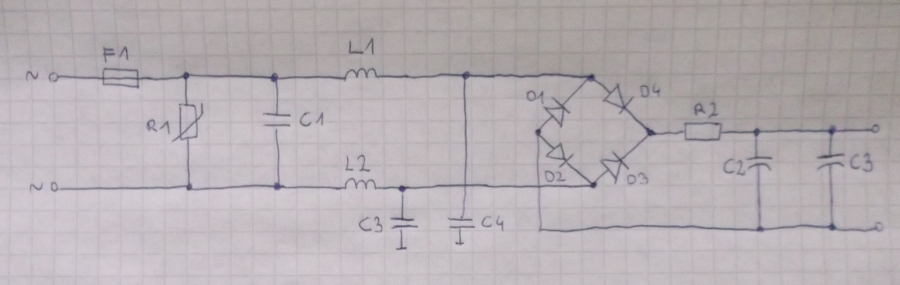 F1
L1
~
D1
D4
R1
C1
R2
C2
C3
~
L2
D2
D3
C3
C4